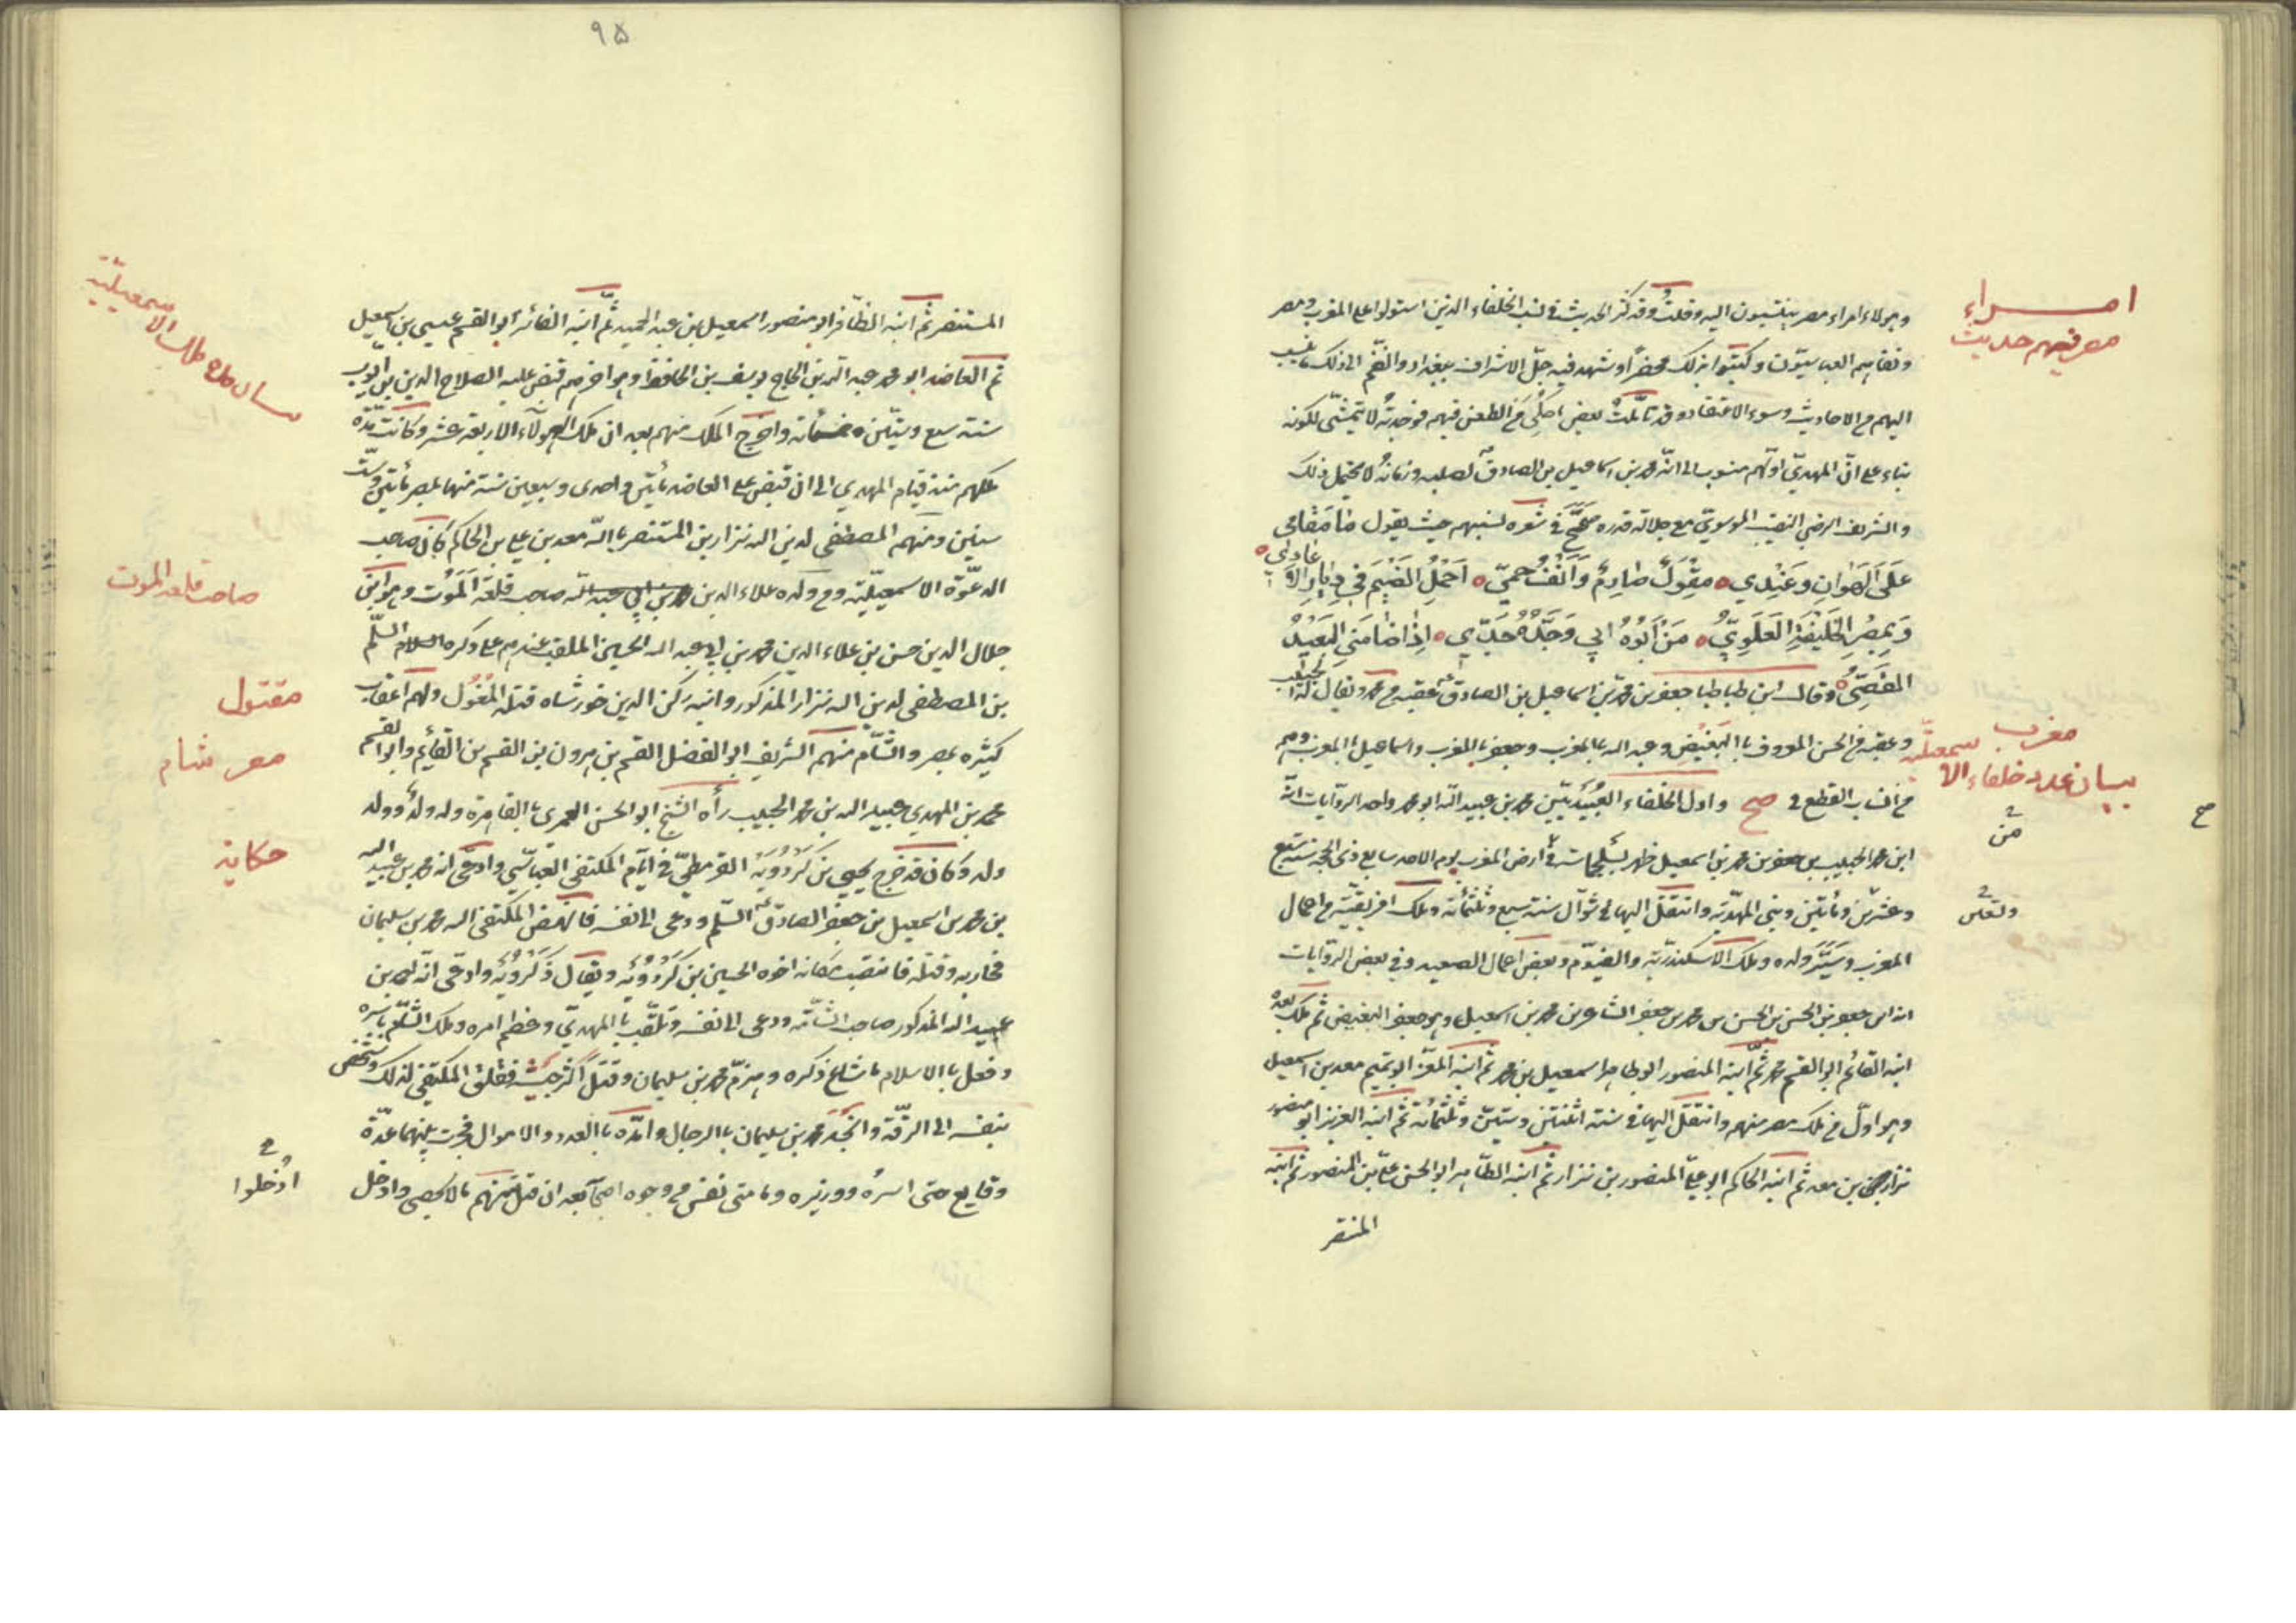 امراء
مصر فيهم حديث
وهولاء امراء مصر ينتسبون اليه وقلت وقد كثر الحديث في نسب الخلفاء الذين استولوا على المغرب ومصر
ونفاهم العباسيون وكتبوا بذلك محضرا وشهد فيه جل الاشراف ببغداد وانضم الى ذلك ما ينسب
اليهم من الاحاديث وسوء الاعتقاد وقد تأملت بعض ما حكي من الطعن فيهم فوجدته لا يتمشى لكونه
بناء على ان المهدي اولهم منسوب الى انه محمد بن اسماعيل بن الصادق لصلبه وزمانه لا يحتمل ذلك
والشريف الرضي النقيب الموسوي مع جلالة قدره صحح في شعره نسبهم حيث يقول ما مقامي
على الهوان وعندي مقول صارم وانف حمي احمل الضيم في ديار الاعادي
وبمصر الخليفة العلوي من ابوه ابي وجده جدي اذا ضامني البعيد
القصي وقال ابن طباطبا جعفر بن محمد بن اسماعيل بن الصادق عقبه من محمد ويقال له الحبيب
وعقبه من الحسن المعروف با البغيض وعبد الله با المغرب وجعفر با المغرب واسماعيل با المغرب وهم
مغرب
بيان عدد خلفاء الاسمعيلية
من انساب القطع في صح واول الخلفاء العبيديين محمد بن عبيد الله ابو محمد واحد الروايات انه
ابن محمد الحبيب بن جعفر بن محمد بن اسمعيل ظهر بسلجماسة في ارض المغرب يوم الاحد سابع ذي الحجة سنة تسع
من
وعشرين ومأتين وبنى المهدية وانتقل اليها في شوال سنة سبع وثلثمأته وملك افريقية من اعمال
المغرب وسير ولده وملك الاسكندرية والفيوم وبعض اعمال الصعيد وفي بعض الروايات
انه ابن جعفر بن الحسن بن الحسن بن محمد بن جعفر الشاعر بن محمد بن اسمعيل وهو جعفر البغيض ثم ملك بعده
ابنه القائم ابو القسم محمد ثم ابنه المنصور ابو طاهر اسمعيل بن محمد ثم ابنه المعز ابو تميم معد بن اسمعيل
وهو اول من ملك مصر منهم وانتقل اليها في سنة اثنتين وستين وثلثمأته ثم ابنه العزيز ابو منصور
نزار بن معد ثم ابنه الحاكم ابو علي المنصور بن نزار ثم ابنه الطاهر ابو الحسن علي بن المنصور ثم ابنه
المنتقر
٩٥
المستنصر ثم ابنه الظافر ابو منصور اسمعيل بن عبد المجيد ثم ابنه الفائز ابو القسم عيسى بن اسمعيل
ثم العاضد ابو محمد عبد الله بن الحاج يوسف بن الحافظ وهو اخرهم قبض عليه الصلاح الدين بن ايوب
سنة سبع وستين وخمسمأته واخرج الملك منهم بعد ان ملك هولاء الاربعة عشر وكانت مدة
ملكهم منذ قيام المهدي الى ان قبض على العاضد مأتين واحدى وسبعين سنة منها بمصر مأتين وست
سنين ومنهم المصطفى لدين الله نزار بن المستنصر با الله معد بن علي بن الحاكم كان صاحب
الدعوة الاسمعيلية ومن ولده علاء الدين محمد بن ابي عبد الله صاحب قلعة الموت وهو ابن
صاحب قلعه الموت
جلال الدين حسن بن علاء الدين محمد بن ابي عبد الله الحسين الملقب عندهم على ذكره السلام
بن المصطفى لدين الله نزار المذكور وابنه ركن الدين خورشاه قتله المغول ولهم اعقاب
مقتول
كثيره بمصر والشام منهم الشريف ابو الفضل القسم بن هرون بن القسم بن القايم وابو القسم
مصر شام
محمد بن المهدي عبيد الله بن محمد الحبيب رأه الشيخ ابو الحسن العمرى با القاهرة وله ولد وولد
ولد وكان قد خرج يحيى بن كردويه القرمطي في ايام المكتفى العباسي وادعى انه محمد بن عبيد الله
حكاية
بن محمد بن اسمعيل بن جعفر الصادق السلم ودعى الى نفسه فانهض المكتفى اليه محمد بن سليمان
فحاربه وقتله فانتصب مكانه اخوه الحسين بن كردويه ويقال ذكرويه وادعى انه احمد بن
عبيد الله المذكور صاحب الشامة ودعى الى نفسه وتلقب با المهدي وعظم امره وملك الشام باسره
وفعل با الاسلام ما شاع ذكره وهزم محمد بن سليمان وقتل اكثر جيشه فقلق المكتفى لذلك وشخص
بنفسه الى الرقة وانجد محمد بن سليمان با الرجال وامده با العدد والاموال فجرت بينهما عدة
وقايع حتى اسره ووزيره ومأتى نفس من وجوه اصحابه بعد ان قتل منهم مالا يحصى وادخل
ادخلوا